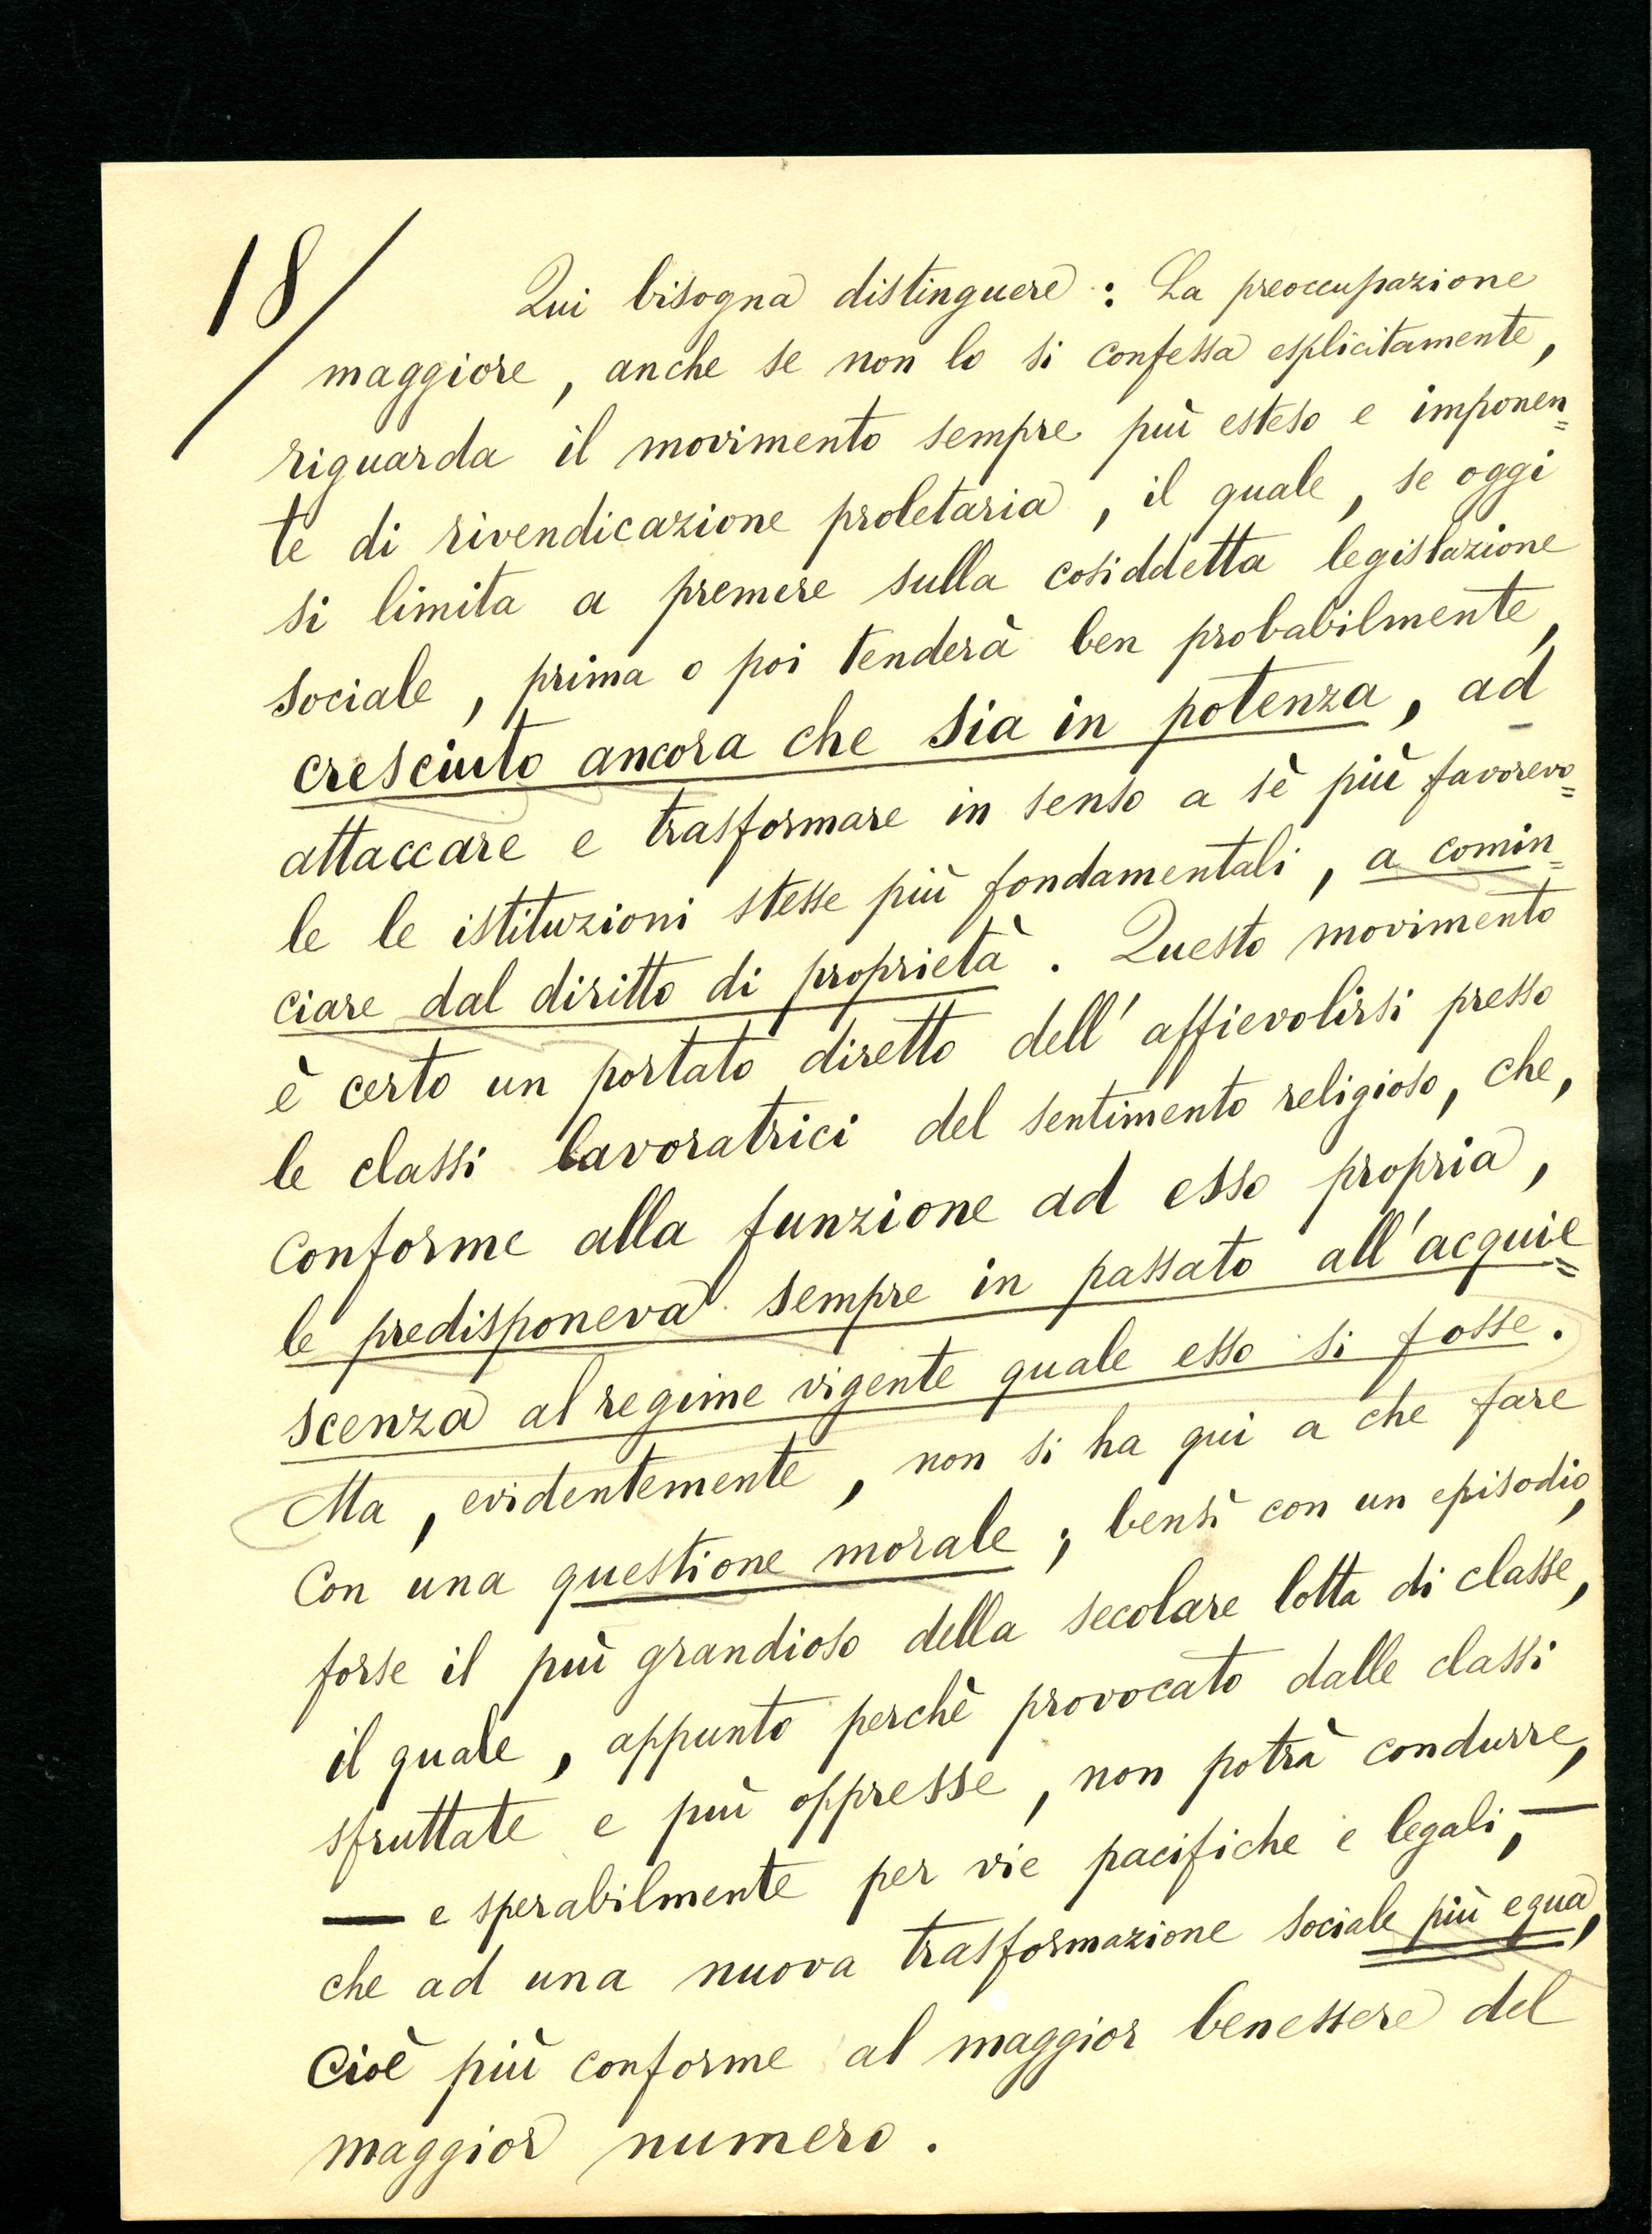 18/
Qui bisogna distinguere : La preoccupazione
maggiore, anche se non lo si confessa esplicitamente,
riguarda il movimento sempre più esteso e imponen=
te di rivendicazione proletaria, il quale, se oggi
si limita a premere sulla cosiddetta legislazione
sociale, prima o poi tenderà ben probabilmente,
cresciuto ancora che sia in potenza, ad
attaccare e trasformare in senso a sè più favorevo=
le le istituzioni stesse più fondamentali, a comin=
ciare dal diritto di proprietà. Questo movimento
è certo un portato diretto dell'affievolirsi presso
le classi lavoratrici del sentimento religioso, che,
conforme alla funzione ad esso propria,
le predisponeva sempre in passato all'acquie=
scenza al regime vigente quale esso si fosse.
Ma, evidentemente, non si ha qui a che fare
con una questione morale; bensì con un episodio,
forse il più grandioso della secolare lotta di classe,
il quale, appunto perchè provocato dalle classi
sfruttate e più oppresse, non potrà condurre,
— e sperabilmente per vie pacifiche e legali, —
che ad una nuova trasformazione sociale più equa,
cioè più conforme al maggior benessere del
maggior numero.